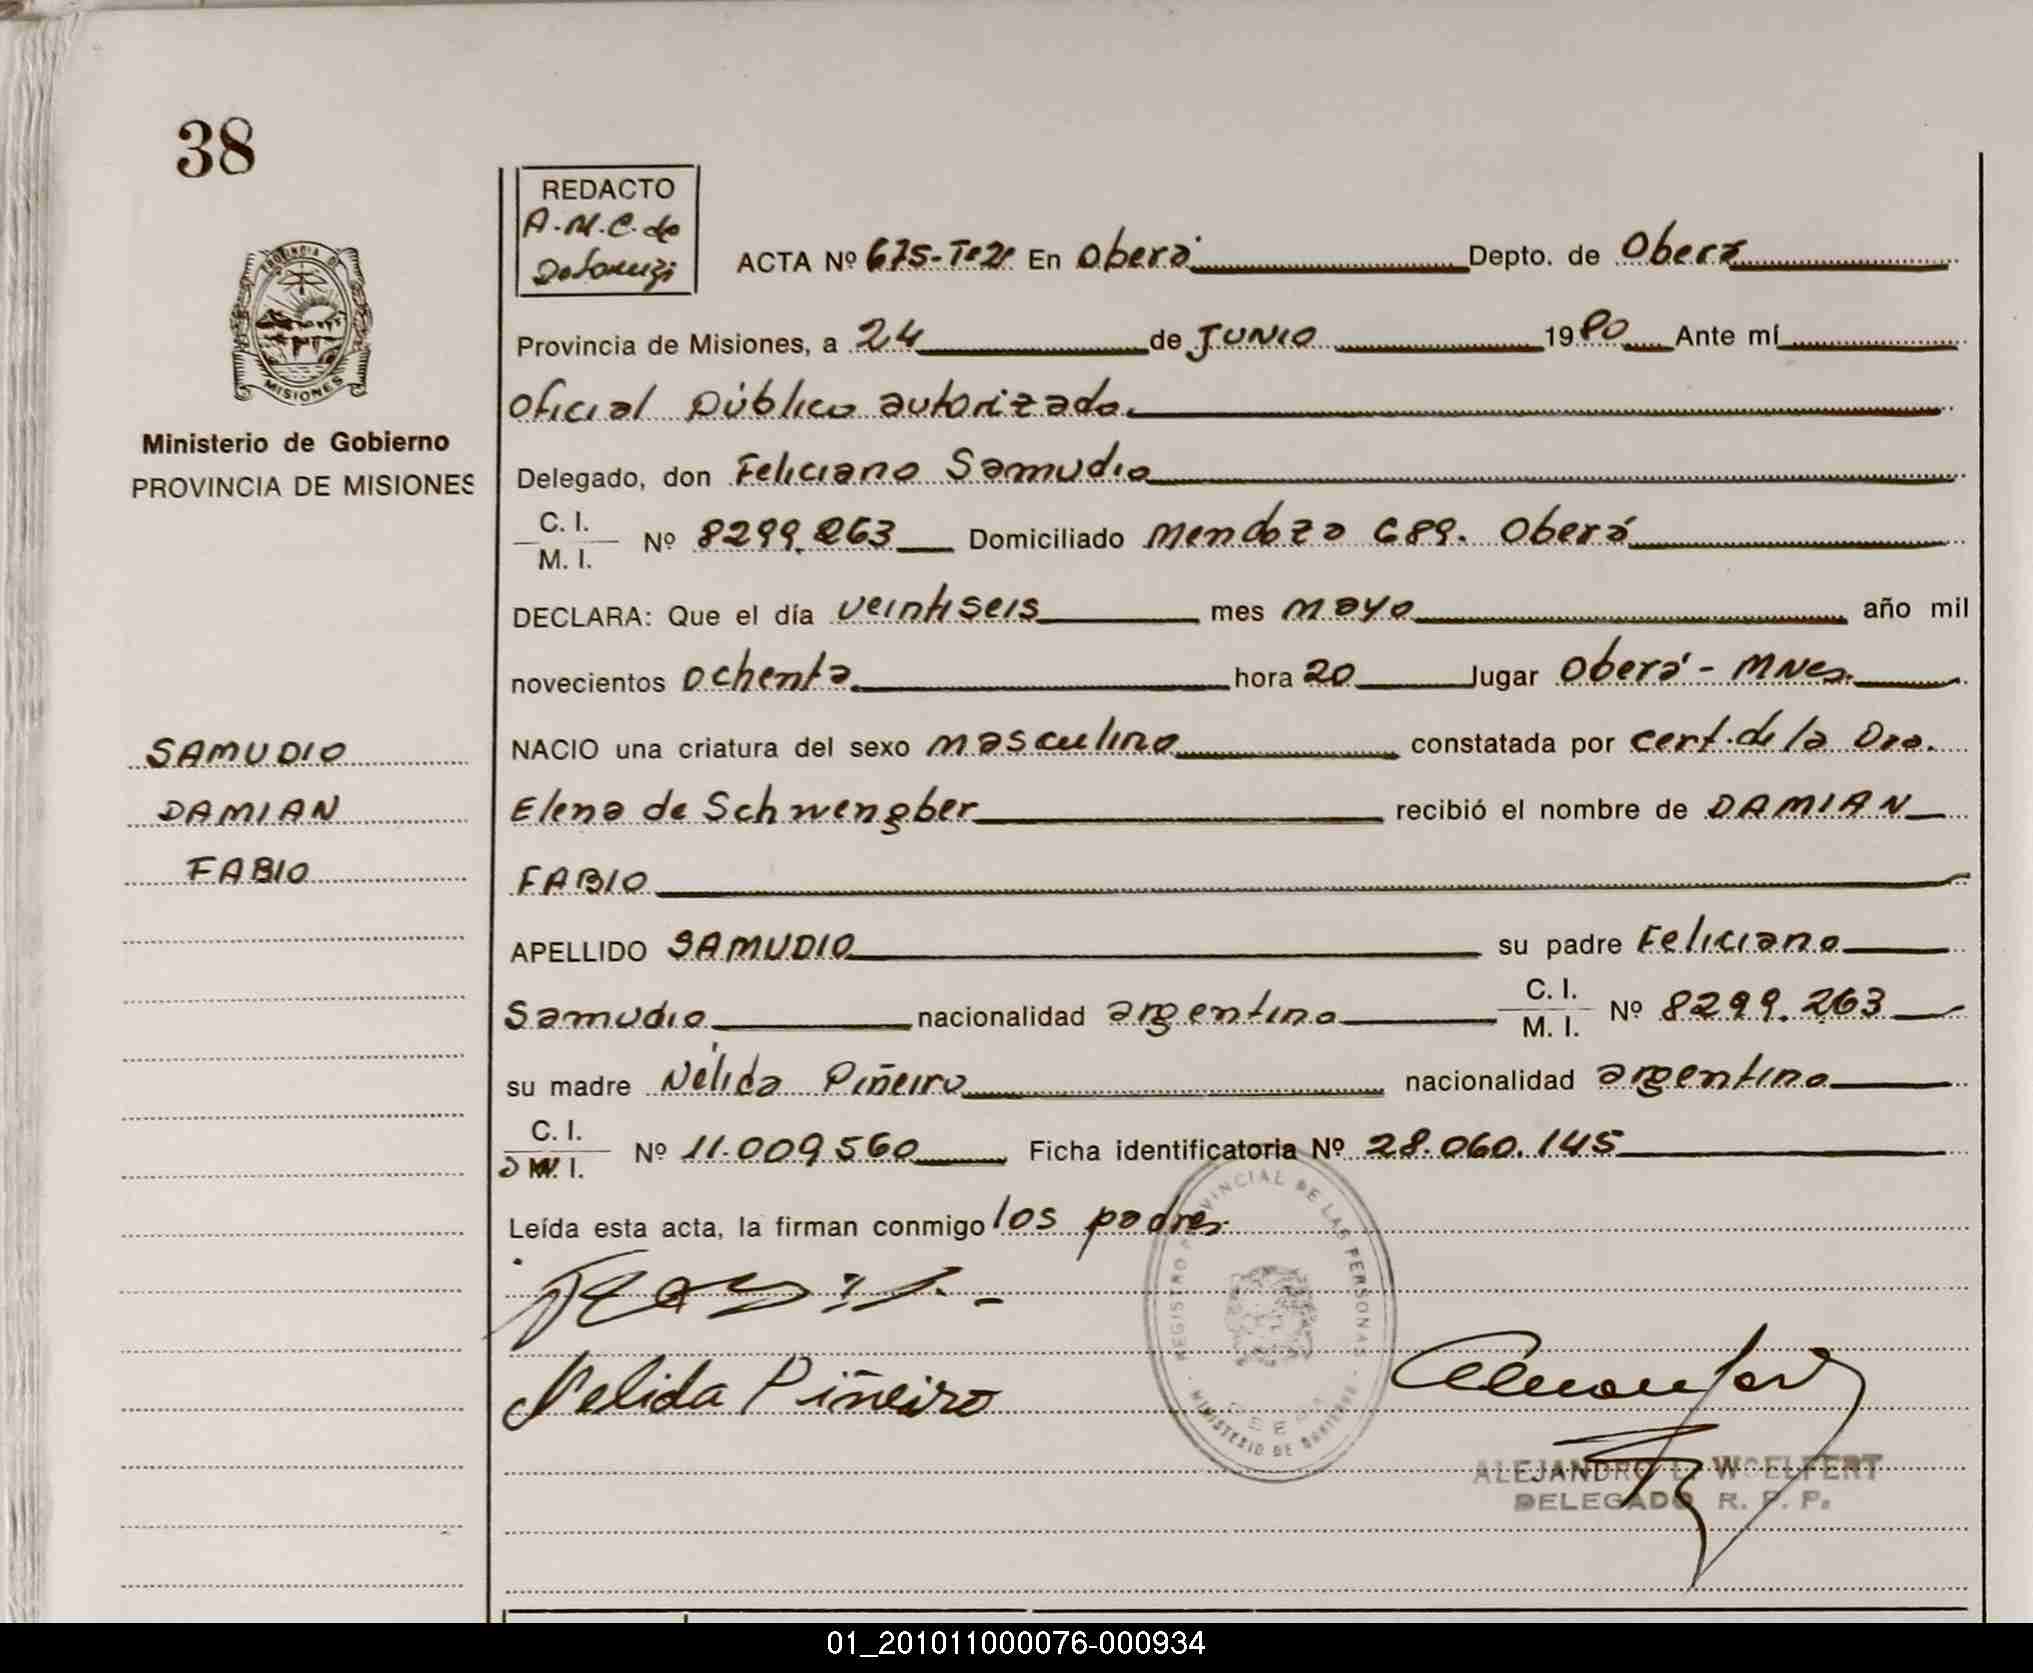 38
REDACTO
A.M.C. de
ACTA Nº 675-Tº2º En Oberá Depto. de Oberá
Provincia de Misiones, a 24 de JUNIO 1980 Ante mí
Oficial Público autorizado
Delegado, don Feliciano Samudio
C. I.
M. I. Nº 8299.263 Domiciliado Mendoza 689. Oberá
DECLARA: Que el día veintiseis mes mayo año mil
novecientos ochenta hora 20 lugar Oberá - MNes.
NACIO una criatura del sexo masculino constatada por cert. de la Dra.
Elena de Schwengber recibió el nombre de DAMIAN
FABIO
APELLIDO SAMUDIO su padre Feliciano
Samudio nacionalidad argentina C. I.
M. I. Nº 8299.263
su madre Nélida Piñeiro nacionalidad argentina
C. I.
D M. I. Nº 11.009.560 Ficha identificatoria Nº 28.060.145
Leída esta acta, la firman conmigo los padres.
Nelida Piñeiro
REGISTRO PROVINCIAL DE LAS PERSONAS
MINISTERIO DE GOBIERNO
ALEJANDRO L. WOELFERT
DELEGADO R. P. P.
PROVINCIA DE
MISIONES
Ministerio de Gobierno
PROVINCIA DE MISIONES
SAMUDIO
DAMIAN
FABIO
01_201011000076-000934